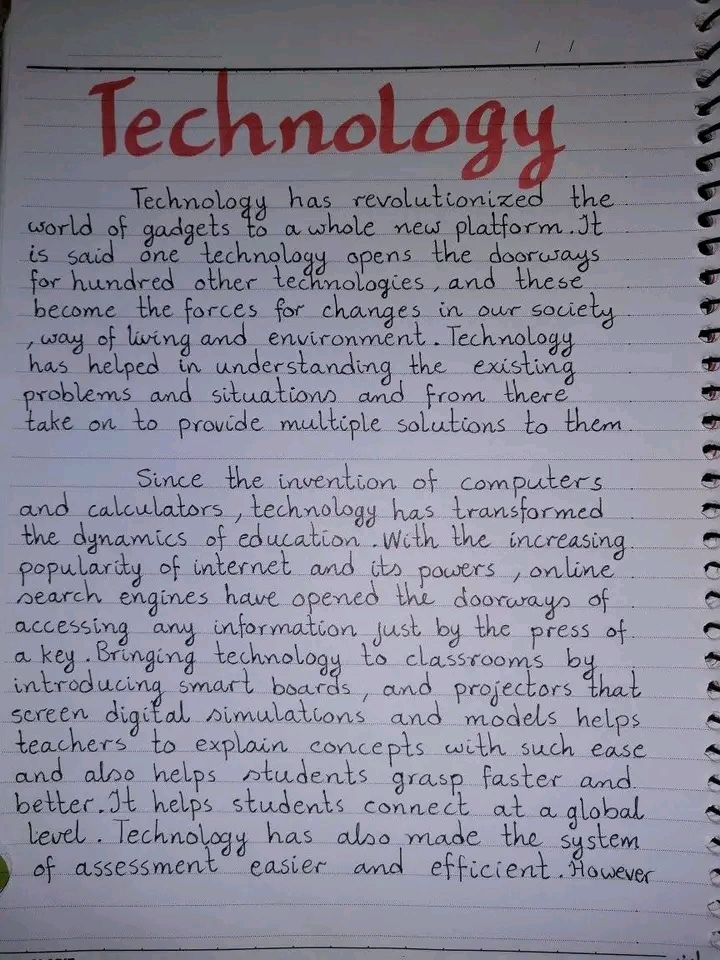 Technology
Technology has revolutionized the
world of gadgets to a whole new platform. It
is said one technology opens the doorways
for hundred other technologies, and these
become the forces for changes in our society
, way of living and environment. Technology
has helped in understanding the existing
problems and situations and from there
take on to provide multiple solutions to them
Since the invention of computers
and calculators, technology has transformed
the dynamics of education. With the increasing
popularity of internet and its powers, online
search engines have opened the doorways of
accessing any information just by the press of
a key. Bringing technology to classrooms by
introducing smart boards, and projectors that
screen digital simulations and models helps
teachers to explain concepts with such ease
and also helps students grasp faster and
better. It helps students connect at a global
level. Technology has also made the system
of assessment easier and efficient. However